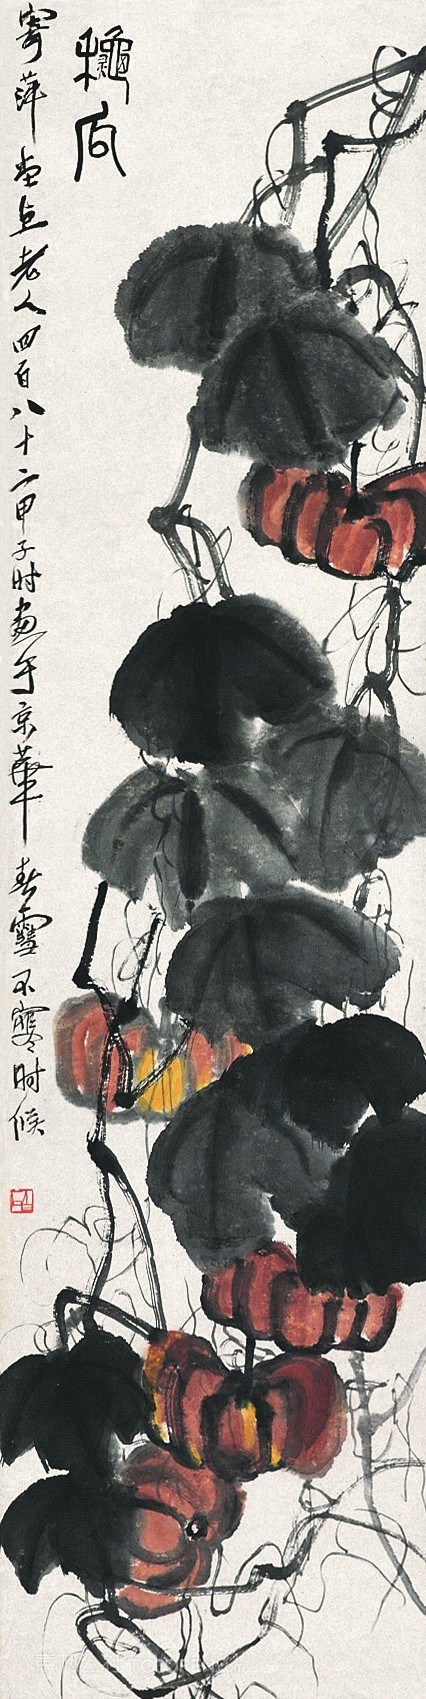 龝
寄萍堂上老人四百八十二甲子时畫于京華春雪不寒时候